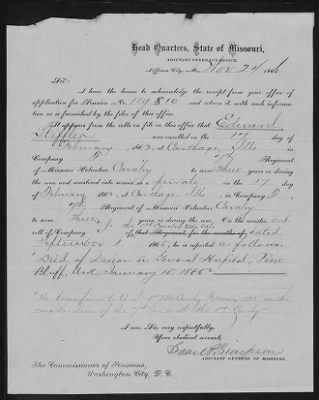 Head Quarters, State of Missouri,
ADJUTANT GENERAL'S OFFICE,
Jefferson City, Mo. Nov 24 1866
Sir:
I have the honor to acknowledge the receipt from your office of
application for Pension No. 119,810 and return it, with such information
as is furnished by the files of this office.
It appears from the rolls on file in this office that Edward
was enrolled on the 17 day of
February 1862, at Carthage, Ills
Company B 7th Regiment
of Missouri Volunteer Cavalry to serve three years
or during the war, and mustered into service as a private on the 17 day
of February 1862, at Carthage Ills in Company B,
7th Regiment of Missouri Volunteer Cavalry
to serve three years or during the war. On the muster out
roll of Company dated
September 1 1865, he is reported as follows:
"Died of in General Hospital, Pine
Bluff, Ark, January 15, 1865"
I am, Sir, very respectfully,
Your obedient servant,
ADJUTANT GENERAL OF MISSOURI.
The Commissioner of Pensions,
Washington City, D. C.